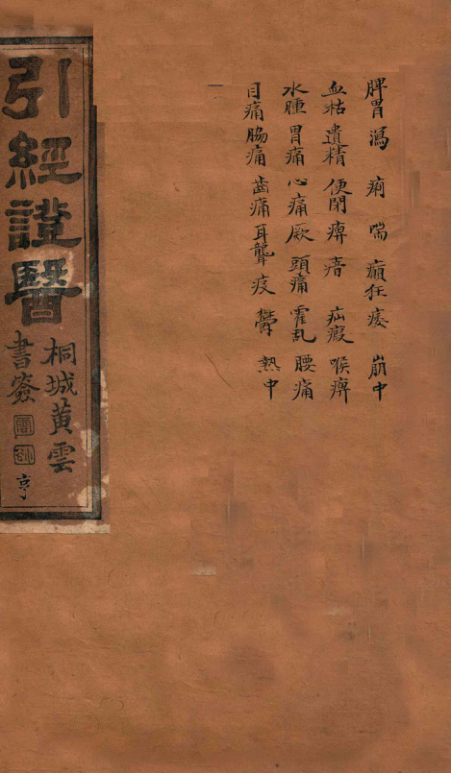 脾胃 瀉 痢 喘 癲狂 痿 崩中
血枯 遺精 便閉 痺 瘖 疝瘕 喉痹
水腫 胃痛 心痛 厥 頭痛 霍乱 腰痛
目痛 脇痛 齒痛 耳聾 疫 鬱 熱中
引經證醫
桐城黃雲
書簽
亨